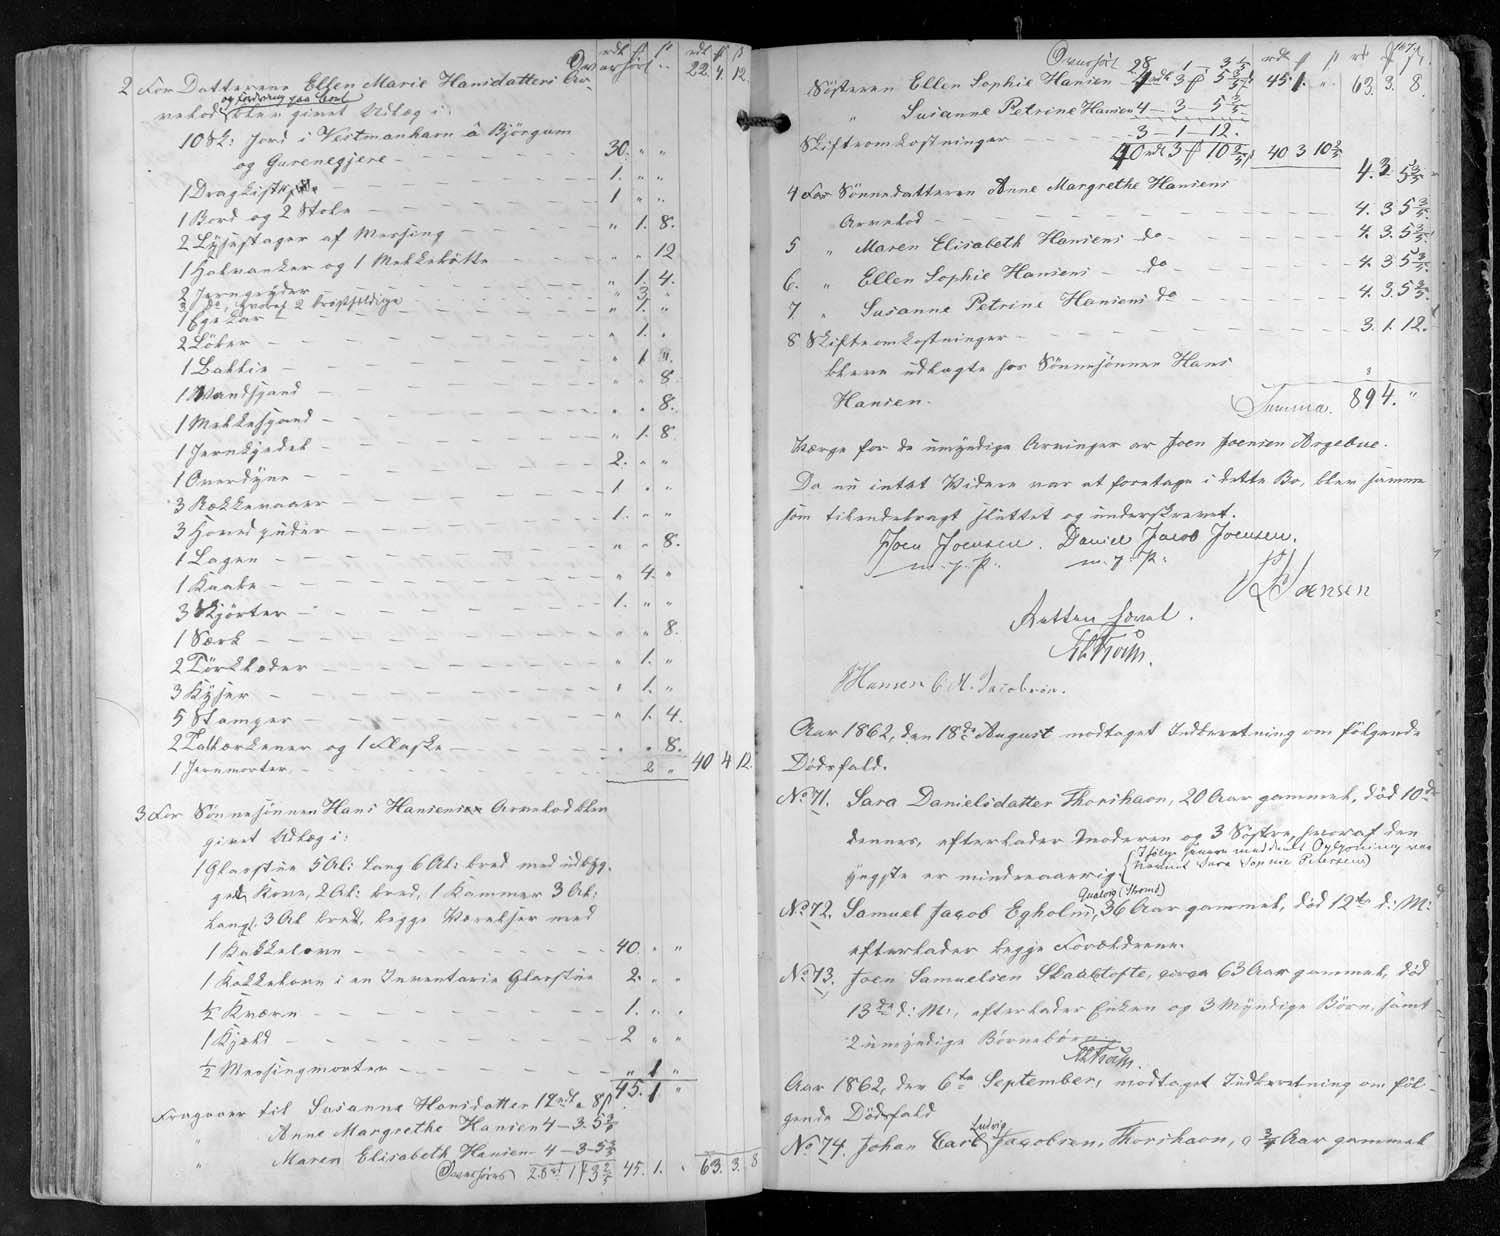 rdl ß rdl ß
Overført " " 22. 4. 12.
2 For Datteren Ellen Marie Hansdatters Ar-
og fordring paa Boet
velod blev givet Udlæg i:
10 Sk: Jord i Vestmanhavn à Bjørgum
og Garenegjere — 30. " "
1 Dragkiste — 1. " "
1 Bord og 2 Stole — 1 " "
2 Lysestager af Messing — " 1. 8.
1 Halvanker og 1 Melkebøtte — " " 12
2 Jerngryder — " 1. 4.
3 do, hvoraf 2 brøstfældige — " 3. "
1 Egekar — " 1. "
2 Løber — " 1. "
1 Ballie — " 1 "
1 Vandspand — " " 8.
1 Melkespand — " " 8.
1 Jernkjedel — " 1. 8
1 Overdyne — 2. " "
3 Rækkevaaer — 1. " "
3 Hovedpuder — 1. " "
1 Lagen — " " 8.
1 Kaabe — " 4. "
3 Skjørter — 1. " "
1 Særk — " " 8.
2 Tørklæder — " 1. "
3 Kyser — " 1. "
5 Stamper — " 1. 4.
2 Tallærkener og 1 Flaske — " " 8.
1 Jernmorter — 2 " 40 4 12.
3 For Sønnesønnen Hans Hansens Arvelod blev
givet Udlæg i:
1 Glasstue 5 Al: lang 6 Al: bred med udbyg-
get Kove, 2 Al: bred, 1 Kammer 3 Al:
lang, 3 Al bred, begge Værelser med
1 Kakkelovn — 40. " "
1 Kakkelovn i en Inventarie Glasstue 2. " "
½ Kværn — 1. " "
1 Kjæld — 2 " "
½ Messingmorter — " 1 "
45. 1 "
Fragaaer til Susanne Hansdatter 12 rdl " 8 ß
" Anne Margrethe Hansen 4 - 3. 5 3/5
" Maren Elisabeth Hansen 4 - 3 - 5 3/5
Overføres 28 rd 1 3 1/5 45. 1. " 63. 3. 8
Overført 28 1 - 3 1/5 rdl ß rdl ß
Søsteren Ellen Sophie Hansen 4 rdl 3 5 3/5 45 1. " 63. 3. 8.
" Susanne Petrine Hansen 4 - 3 - 5 3/5
Skifteomkostninger — 3 - 1 - 12.
40 rdl 3 10 2/5 40 3 10 2/5
4 For Sønnedatteren Anne Margrethe Hansens
Arvelod — 4. 3 5 3/5
5 " Maren Elisabeth Hansens do — 4. 3 5 3/5
6. " Ellen Sophie Hansens — do — 4. 3. 5 3/5
7. " Susanne Petrine Hansens do — 4. 3 5 3/5
8 Skifteomkostninger — 3. 1. 12.
bleve udlagte hos Sønnesønnen Hans
Hansen.
Summa. 89 4. "
Værge for de umyndige Arvinger er Joen Joensen Argeboe.
Da nu intet Videre var at foretage i dette Bo, blev samme
som tilendebragt sluttet og underskrevet.
Joen Joensen. Daniel Jacob Joensen.
m. f. P. m. f. P.
Joensen
Retten hævet.
JHansen C. M. Jacobsen.
Aar 1862, den 18de August modtaget Indberetning om følgende
Dødsfald.
No 71. Sara Danielsdatter Thorshavn, 20 Aar gammel, død 10de
dennes, efterlader Moderen og 3 Søstre, hvoraf den
yngste er mindreaarig.
Qualvig (Strømø)
No 72. Samuel Jacob Egholm, 36 Aar gammel, død 12te d: M:
efterlader begge Forældrene.
No 73. Joen Samuelsen Skaaletofte, circa 63 Aar gammel, død
13de d: M:, efterlader Enken og 3 Myndige Børn, samt
2 umyndige Børnebørn
Aar 1862, den 6te September, modtaget Indberetning om føl-
gende Dødsfald
Ludvig
No 74. Johan Carl Jacobsen, Thorshavn, ¾ Aar gammel